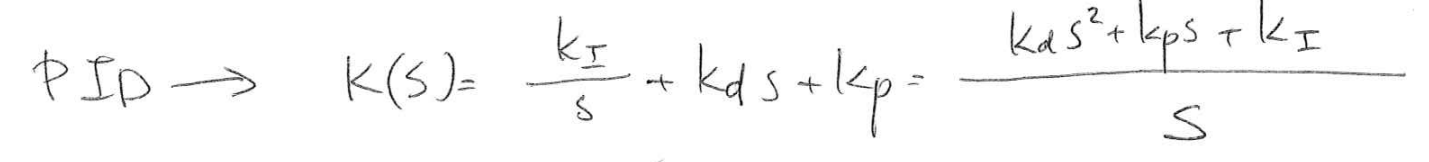 PID → K(s)= k_I/s + kds + kp = (kds²+kps+k_I)/s